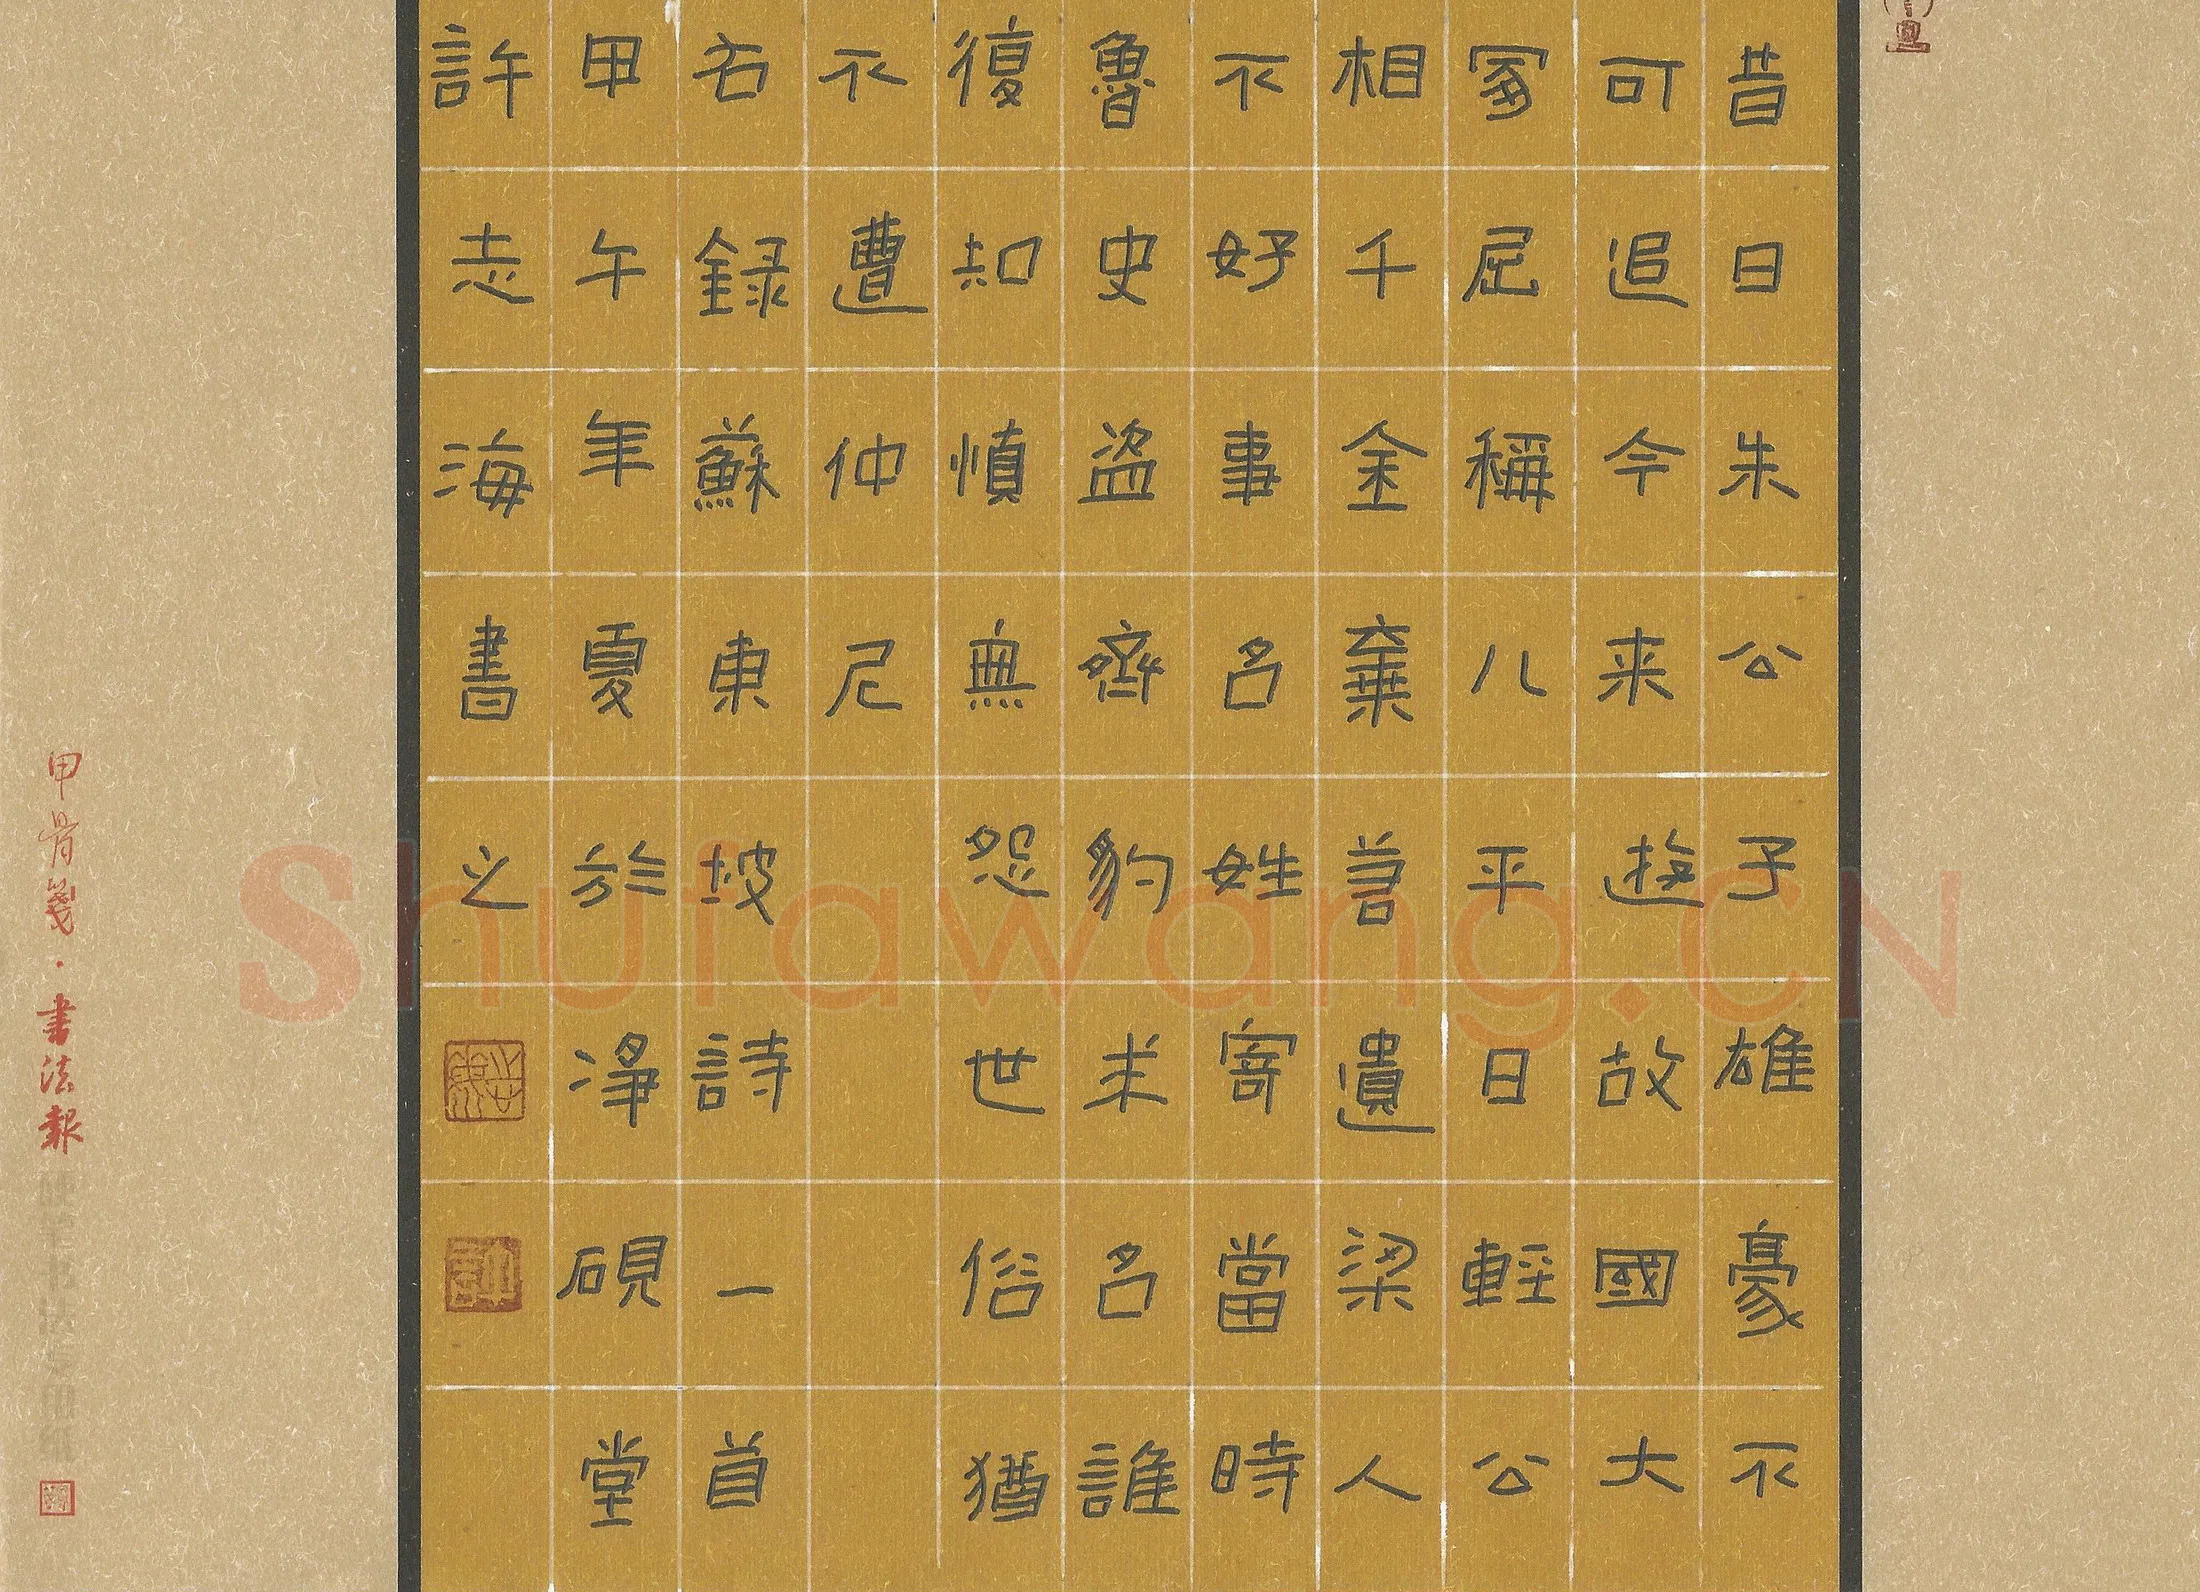 昔日朱公子雄豪不
可追今来遊故國大
冢屈稱儿平日輕公
相千金棄若遺梁人
不好事名姓寄當時
魯史盜齊豹求名誰
復知慎無怨世俗猶
不遭仲尼
右録蘇東坡詩一首
甲午年夏於淨硯堂
許志海書之
甲骨箋·書法報
Shufawang.CN